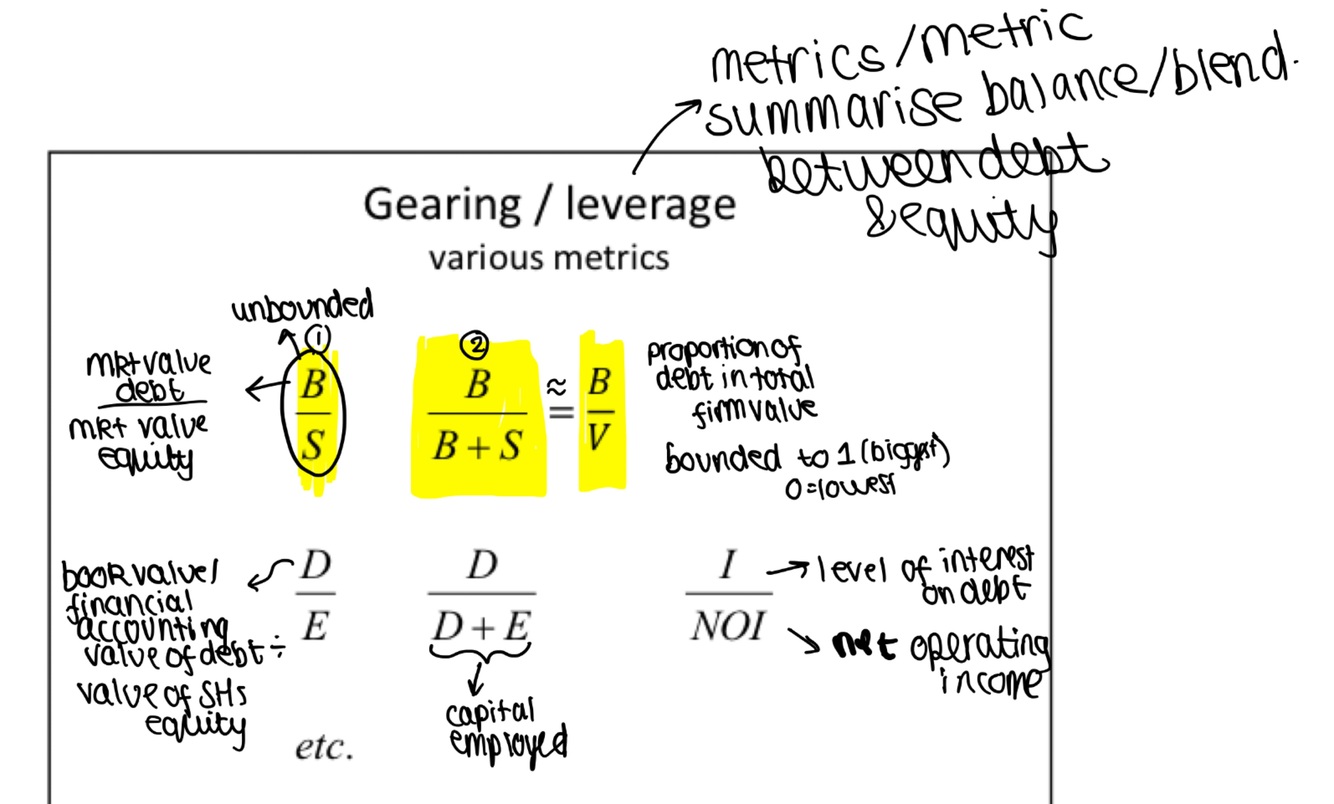 metrics/metric
summarise balance/blend.
between debt
& equity
Gearing / leverage
various metrics
unbounded
①
②
mkt value
debt
mkt value
equity
B
S
B
B + S
≈
=
B
V
proportion of
debt in total
firm value
bounded to 1 (biggest)
0 = lowest
book value/
financial
accounting
value of debt ÷
value of SHs
equity
D
E
D
D + E
capital
employed
I
NOI
level of interest
on debt
net operating
income
etc.